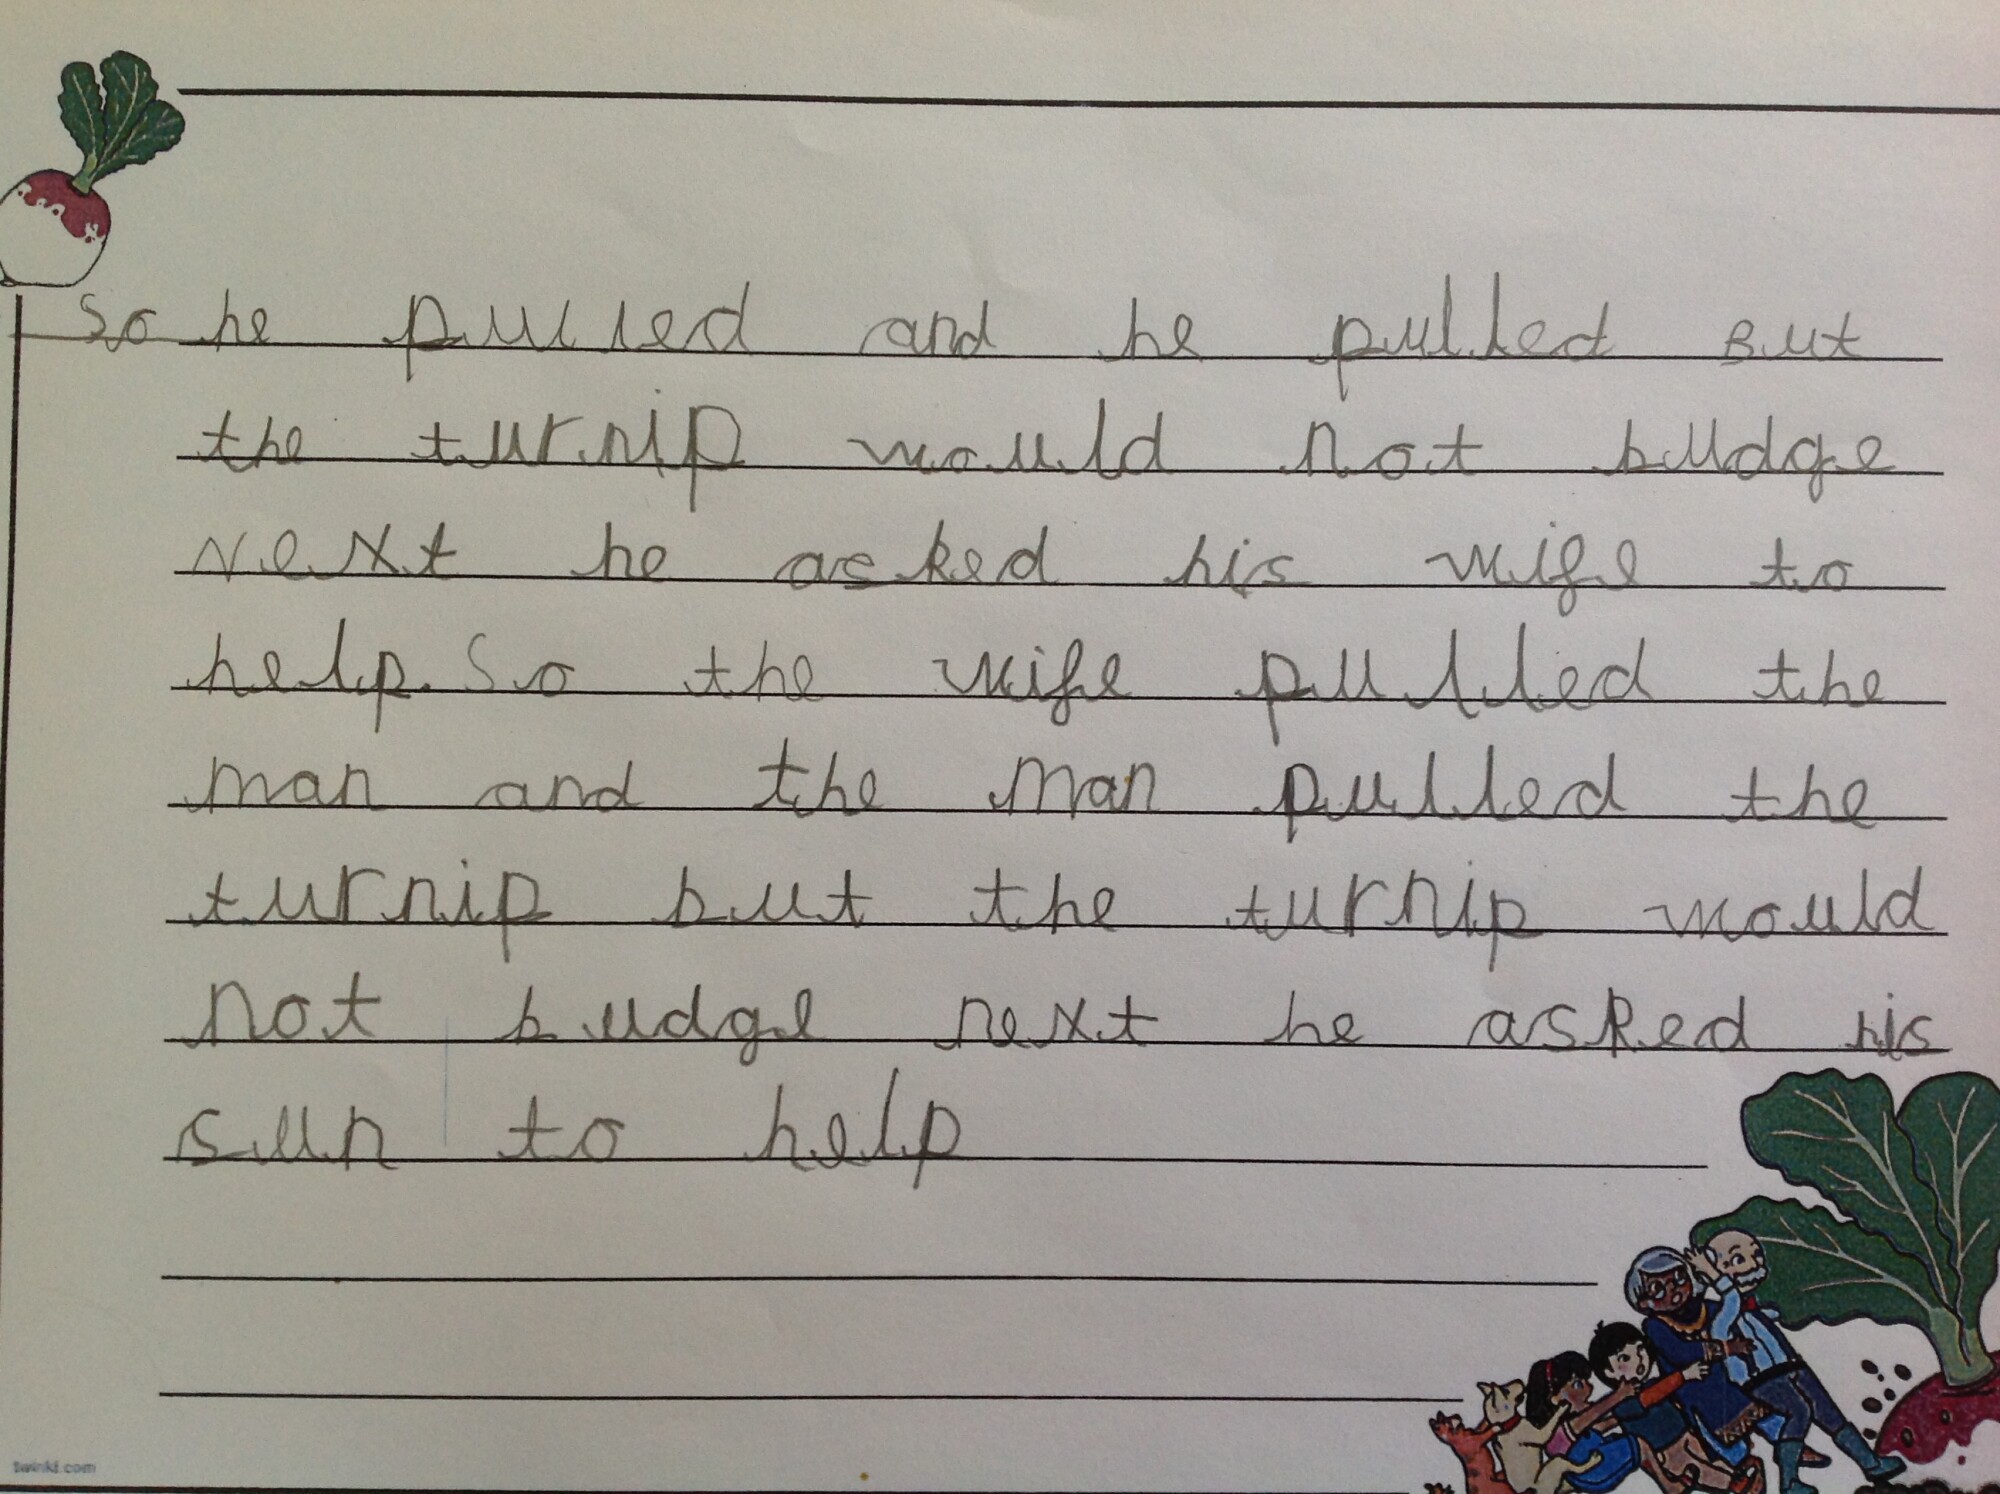 So he pulled and he pulled But
the turnip would not budge
Next he asked his wife to
help. So the wife pulled the
man and the man pulled the
turnip but the turnip would
not budge next he asked his
sun to help
twinkl.com